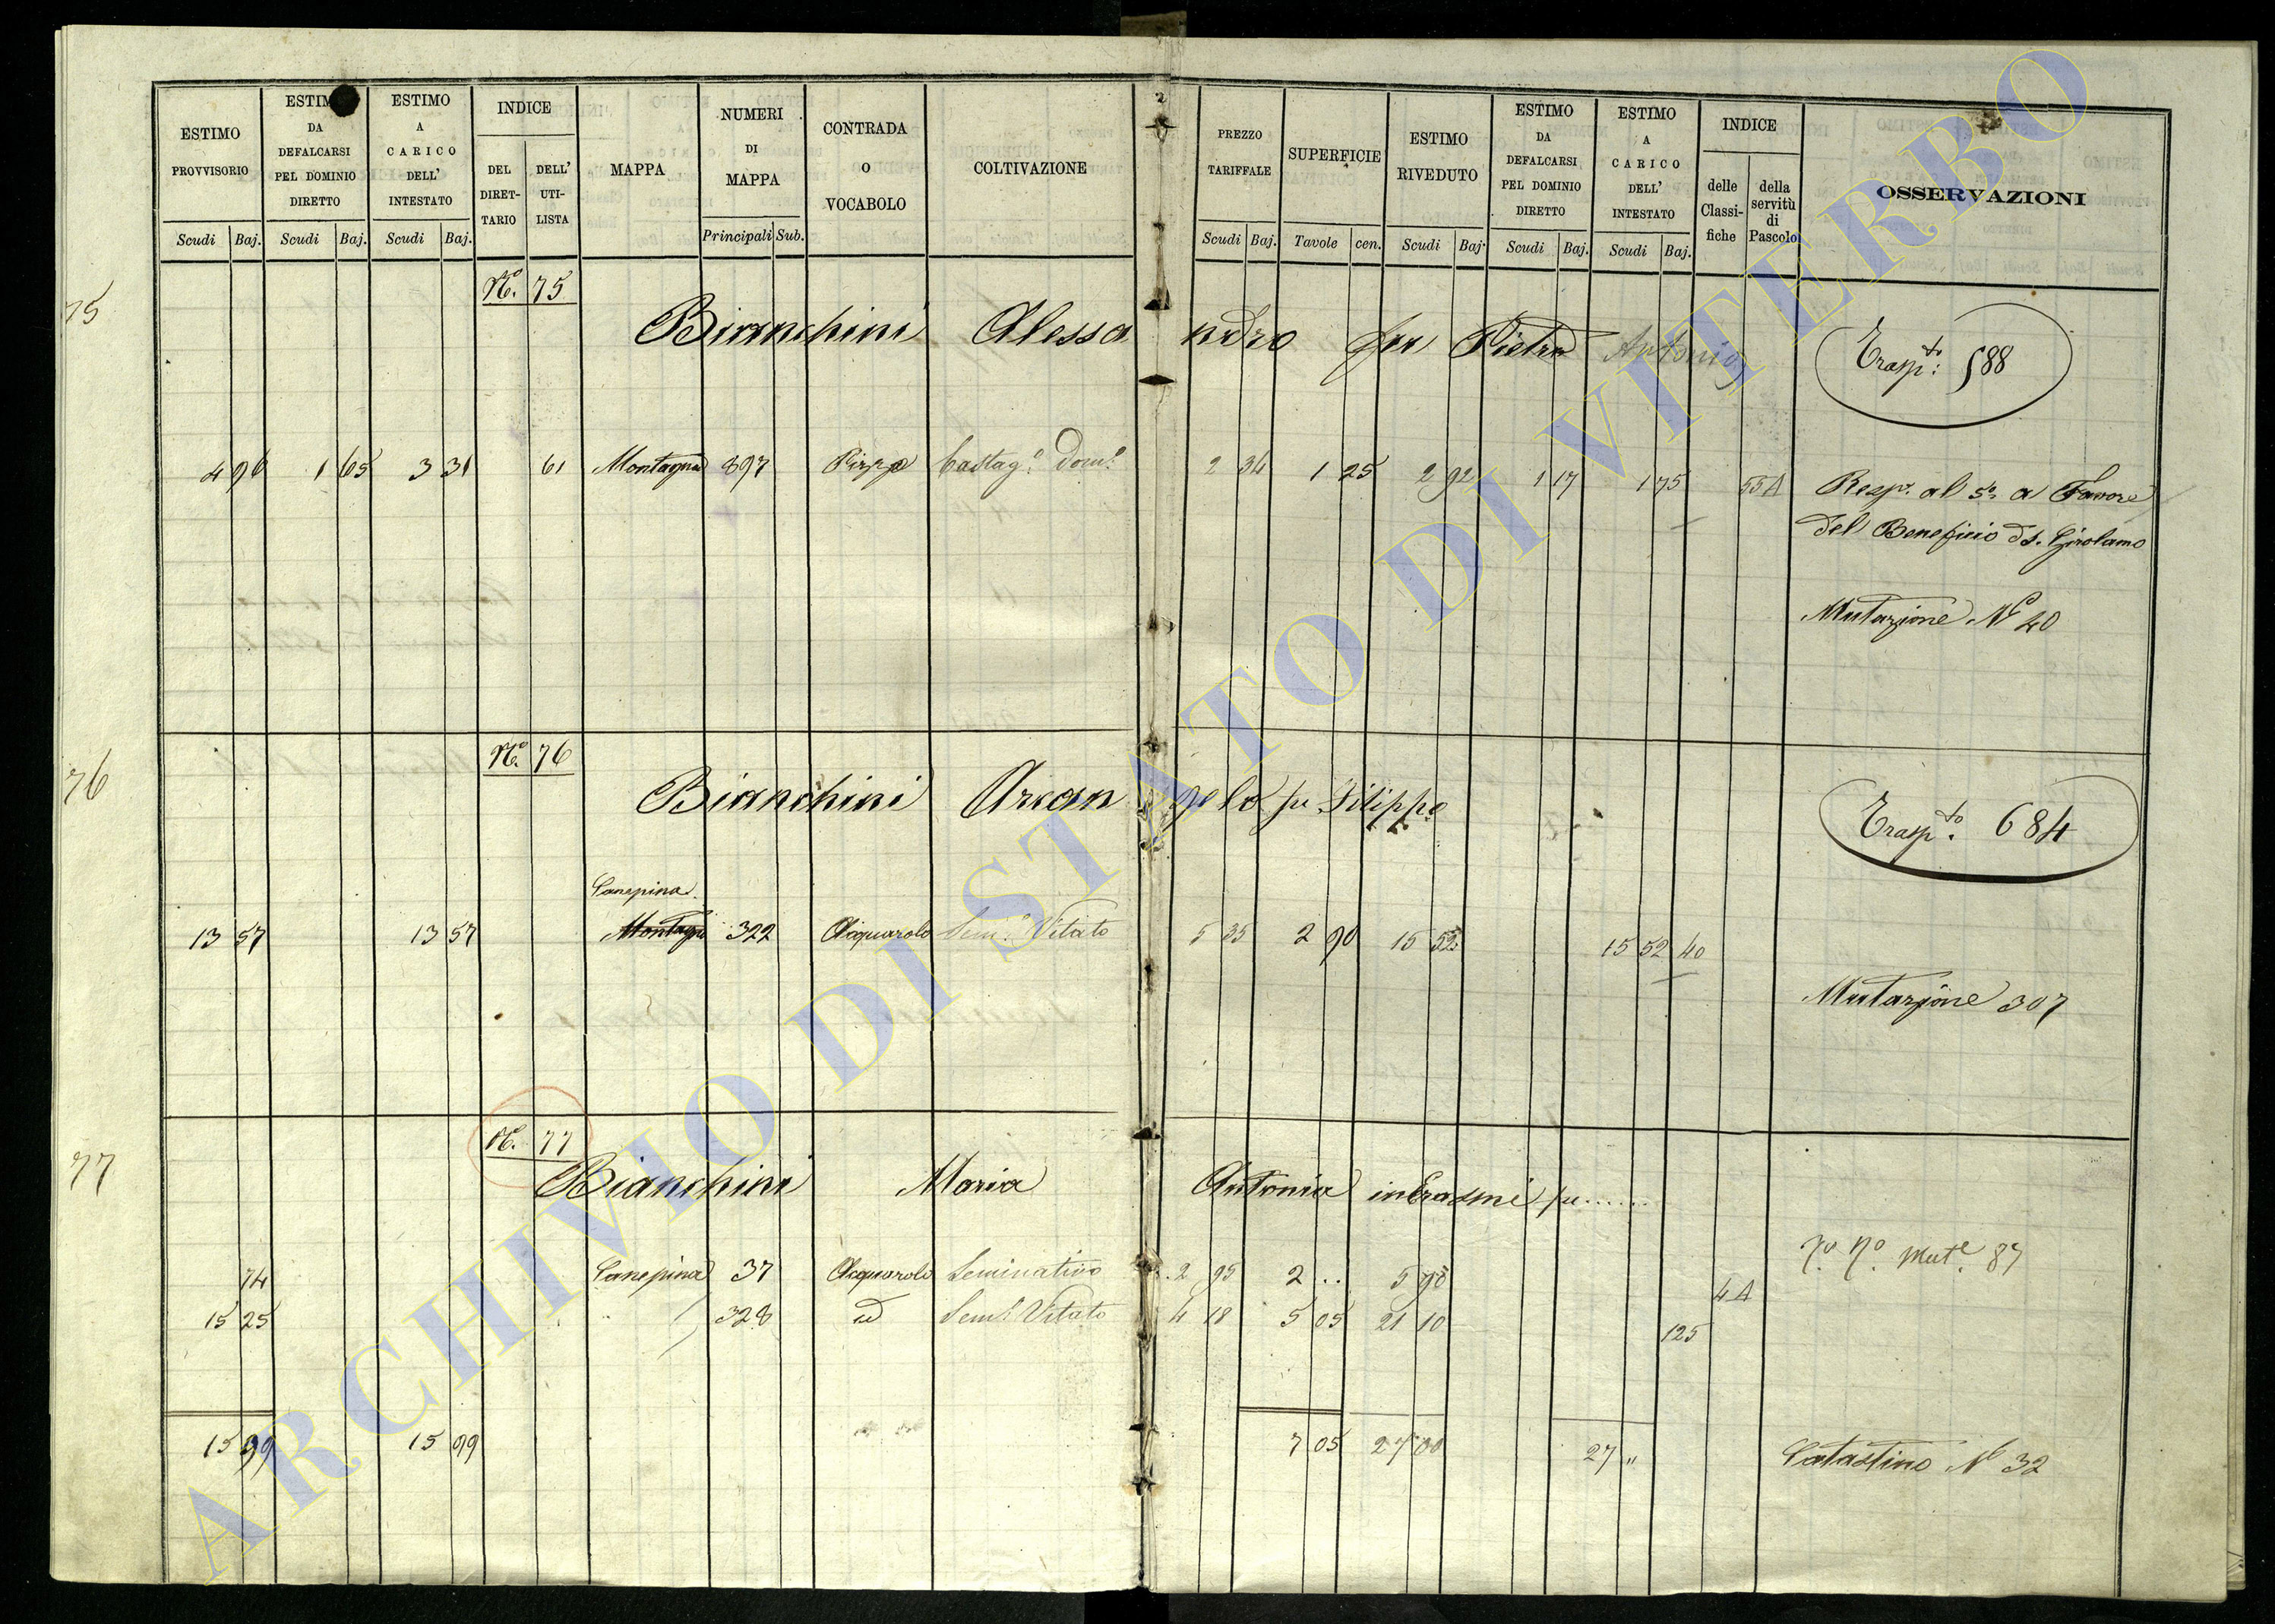 ESTIMO PROVVISORIO
ESTIMO DA DEFALCARSI PEL DOMINIO DIRETTO
ESTIMO A CARICO DELL' INTESTATO
INDICE
DEL DIRET-TARIO
DELL' UTI-LISTA
MAPPA
NUMERI DI MAPPA
CONTRADA O VOCABOLO
COLTIVAZIONE
Scudi Baj. Scudi Baj. Scudi Baj. Principali Sub.
2
PREZZO TARIFFALE
SUPERFICIE
ESTIMO RIVEDUTO
ESTIMO DA DEFALCARSI PEL DOMINIO DIRETTO
ESTIMO A CARICO DELL' INTESTATO
INDICE
delle Classi-fiche
della servitù di Pascolo
OSSERVAZIONI
Scudi Baj. Tavole cen. Scudi Baj. Scudi Baj. Scudi Baj.
75
N.º 75
Bianchini Alessandro fu Pietro Antonio
Trasp.to: 588
4 96 1 65 3 31 61 Montagna 897 Pizzo Castag.º Dom.º 2 34 1 25 2 92 1 17 1 75 55A Resp. al 5.º a Favore
del Beneficio di S. Girolamo
Mutazione Nº 40
76
N.º 76
Bianchini Arcangelo fu Filippo
Trasp.to. 684
Canepina
13 57 13 57 Montagna 322 Acquarolo Sem.º Vitato 5 35 2 90 15 52 15 52 40
Mutazione 307
77
N.º 77
Bianchini Maria Antonia in Erasmi fu ......
Mut.e 87
74 Canepina 37 Acquarolo Seminativo 2 95 2 .. 5 90 4A
15 25 328 id Sem.º Vitato 4 18 5 05 21 10 125
15 99 15 99 7 05 27 00 27 "
Catastino Nº 32
ARCHIVIO DI STATO DI VITERBO